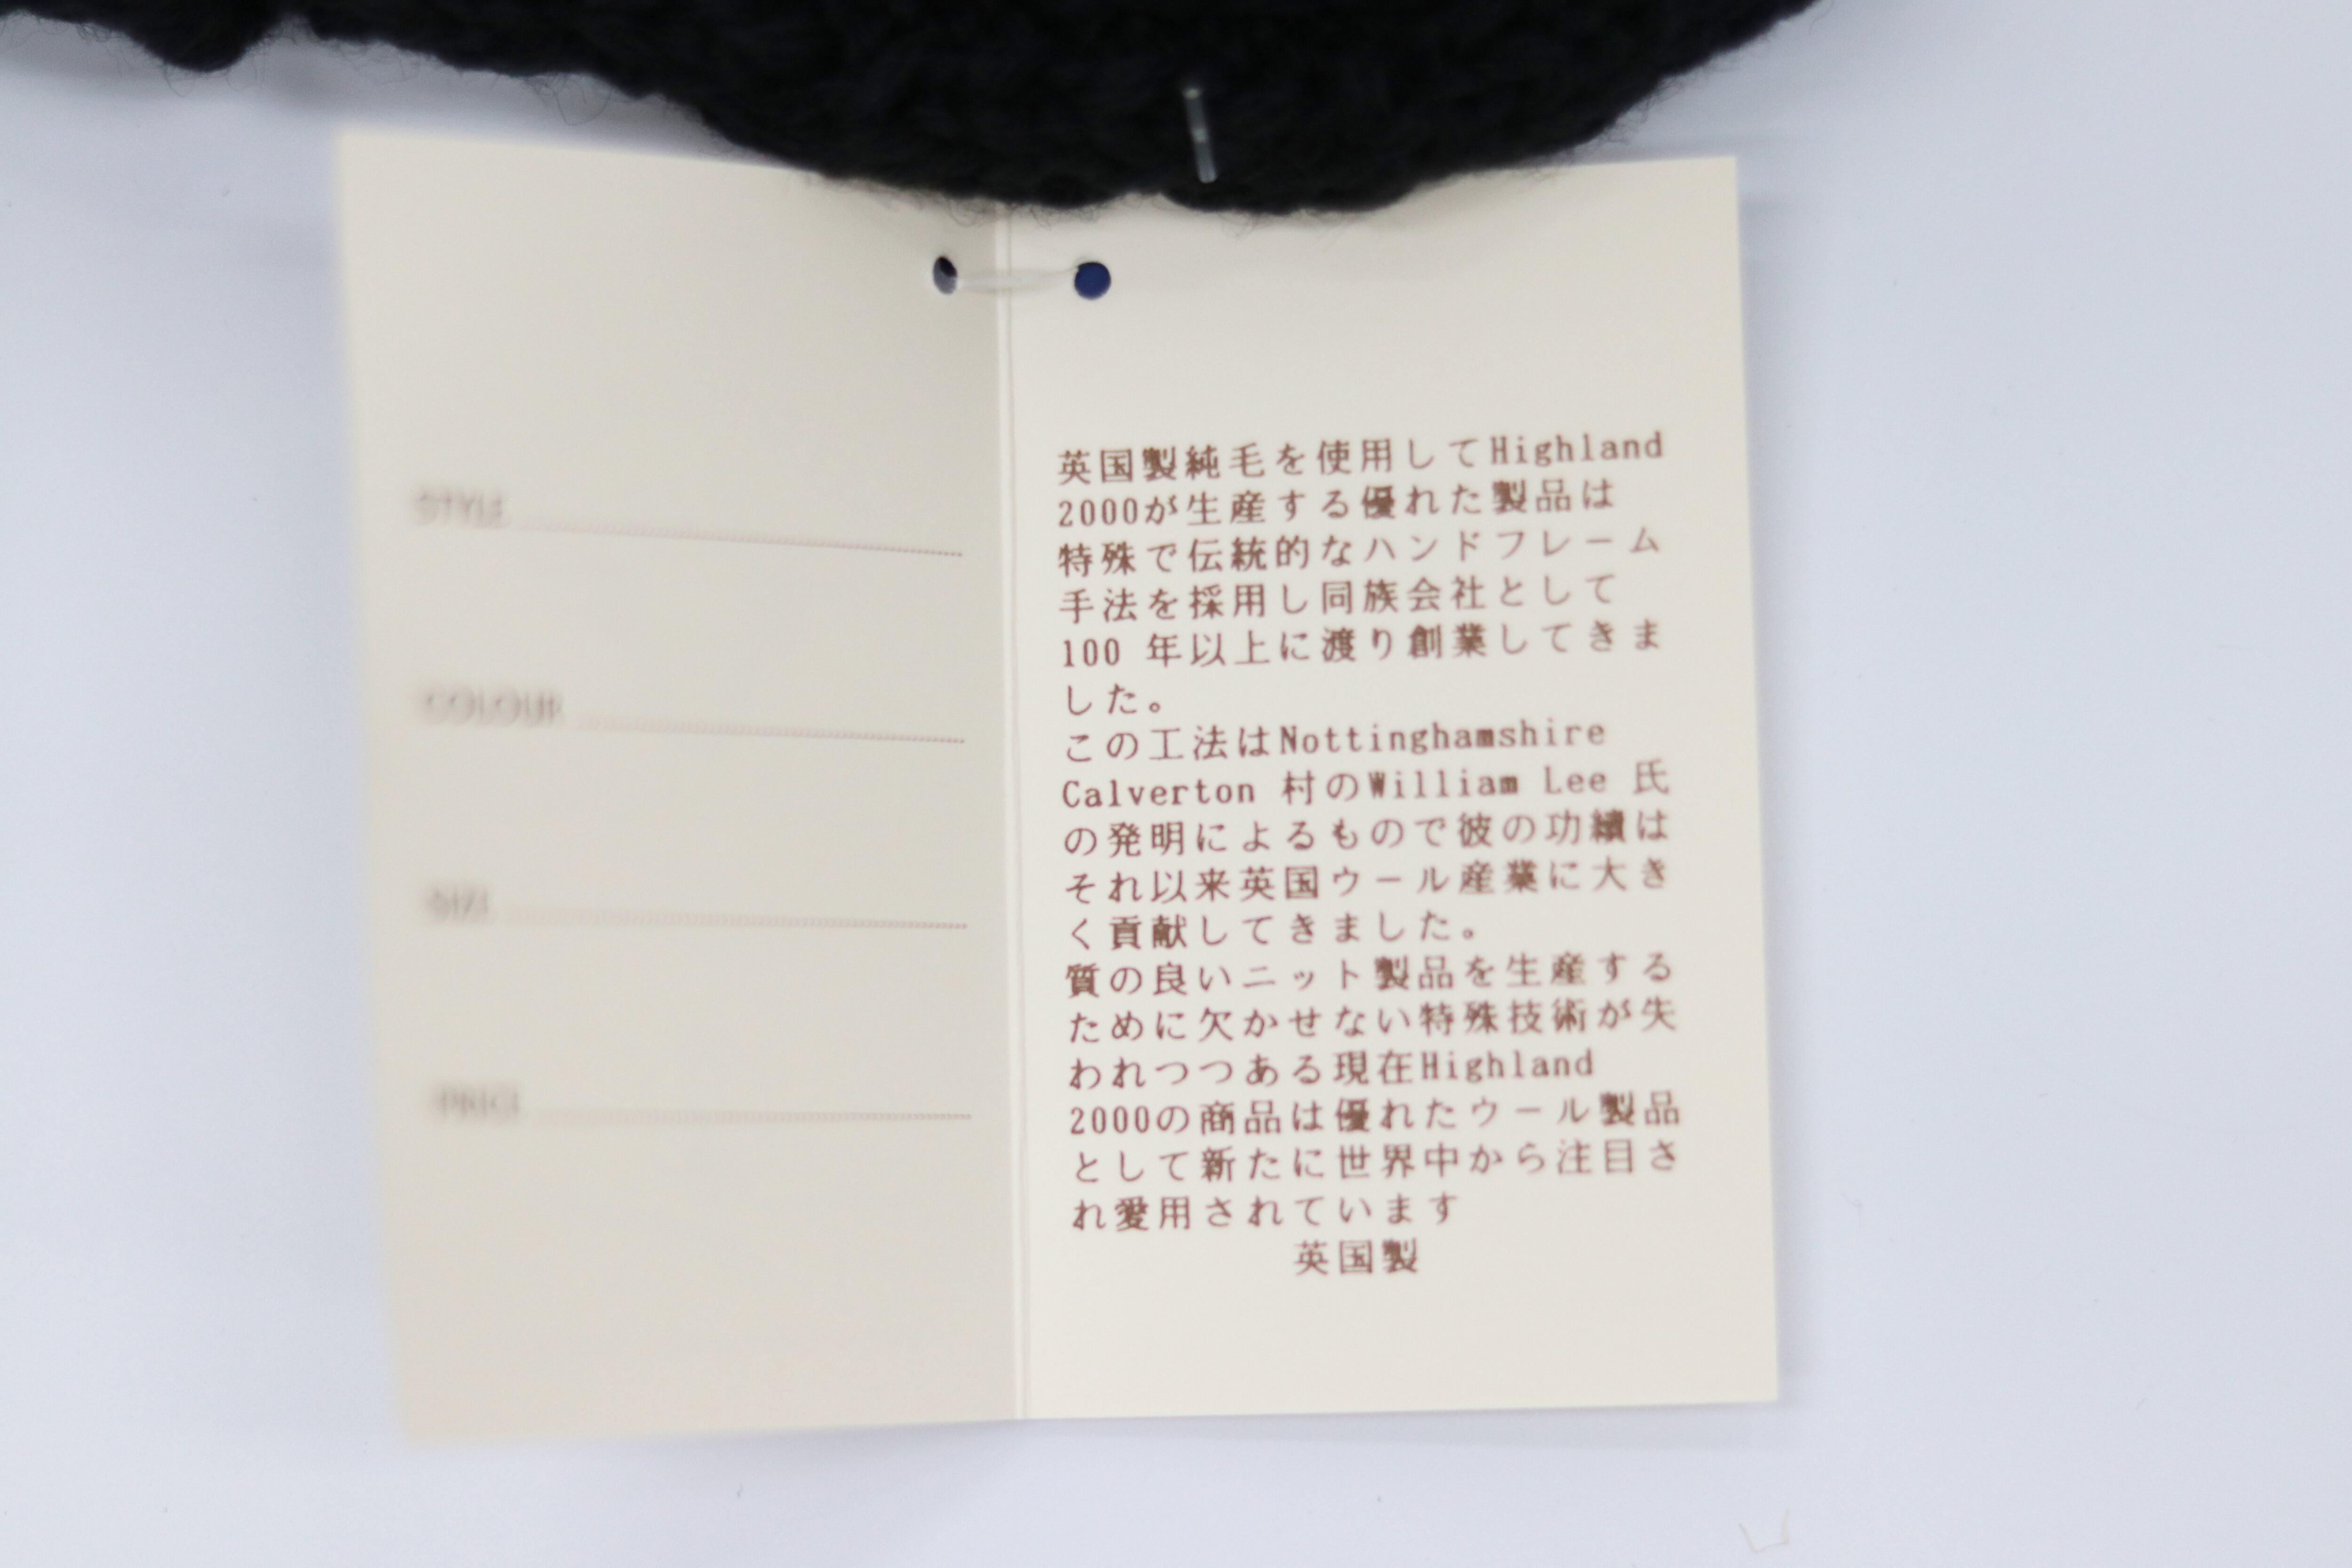 STYLE
COLOUR
SIZE
PRICE
英国製純毛を使用してHighland
2000が生産する優れた製品は
特殊で伝統的なハンドフレーム
手法を採用し同族会社として
100 年以上に渡り創業してきま
した。
この工法はNottinghamshire
Calverton 村のWilliam Lee 氏
の発明によるもので彼の功績は
それ以来英国ウール産業に大き
く貢献してきました。
質の良いニット製品を生産する
ために欠かせない特殊技術が失
われつつある現在Highland
2000の商品は優れたウール製品
として新たに世界中から注目さ
れ愛用されています
英国製